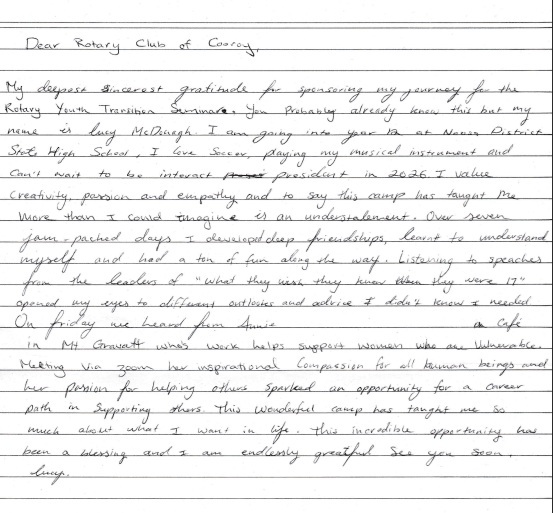 Dear Rotary Club of Cooroy,
My deepest sincerest gratitude for sponsoring my journey for the
Rotary Youth Transition Seminare. You Probably already know this but my
name is Lucy McDonagh. I am going into year 12 at Noosa District
State High School, I love Soccer, playing my musical instrument and
Can't wait to be interact president in 2026. I value
Creativity, passion and empathy and to say this camp has taught me
more than I could imagine is an understatement. Over seven
jam-packed days I developed deep friendships, learnt to understand
myself and had a ton of fun along the way. Listening to speaches
from the leaders of "what they wish they knew when they were 17"
opened my eyes to different outlooks and advice I didn't know I needed
On friday we heard from Annie a Café
in Mt Gravatt who's work helps support women who are Vulnerable.
Meeting via zoom her inspirational Compassion for all human beings and
her passion for helping others sparked an opportunity for a career
path in supporting others. This wonderful camp has taught me so
much about what I want in life. This incredible opportunity has
been a blessing and I am endlessly greatful See you soon,
Lucy.